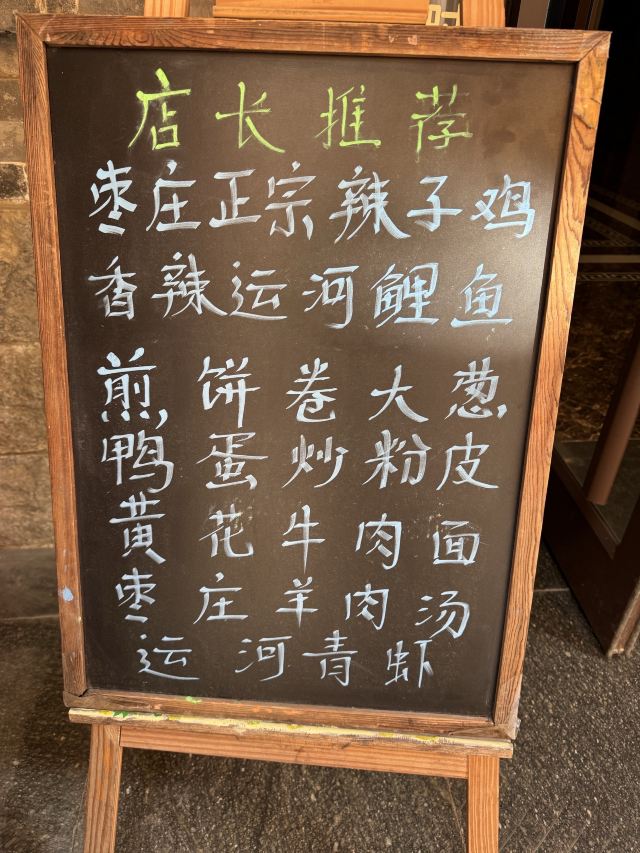 店长推荐
枣庄正宗辣子鸡
香辣运河鲤鱼
煎饼卷大葱
鸭蛋炒粉皮
黄花牛肉面
枣庄羊肉汤
运河青虾